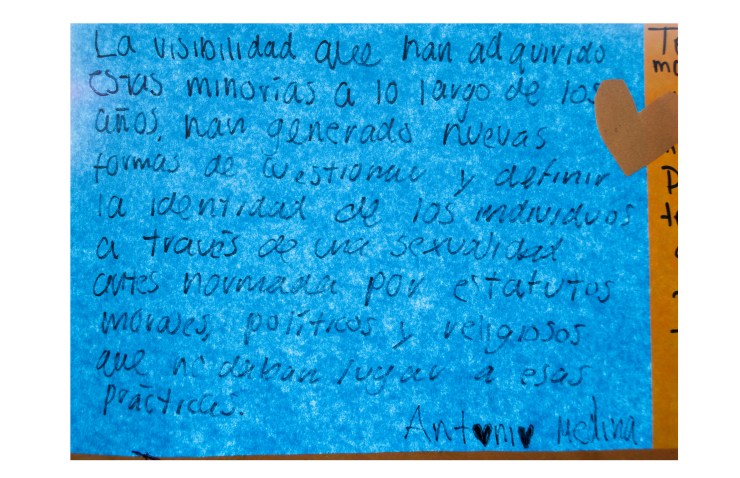 La visibilidad que han adquirido
estas minorías a lo largo de los
años, han generado nuevas
formas de cuestionar y definir
la identidad de los individuos
a través de una sexualidad
antes normada por estatutos
morales, políticos y religiosos
que no daban lugar a esas
prácticas.
Antonio Medina